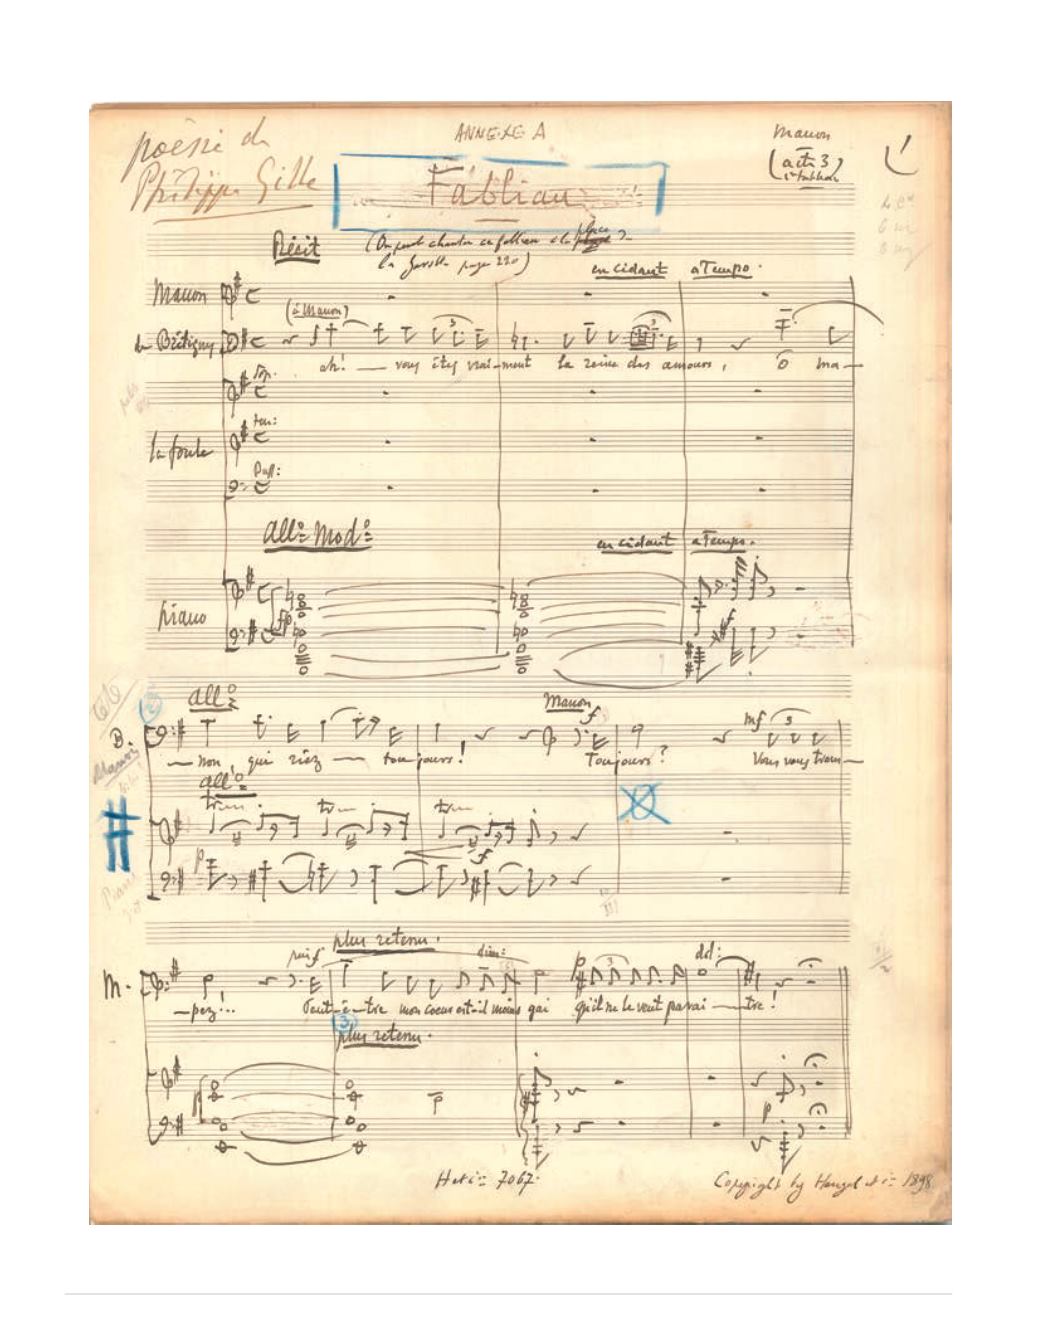 poësie de
Philippe Gille
ANNEXE A
Manon
(acte 3
1er tableau
Fabliau
Récit
(On peut chanter ce fabliau à la place de
la Gavotte page 220)
en cédant a Tempo.
Manon
(à Manon)
de Brétigny
ah! — vous êtes vrai-ment la reine des amours, ô ma—
Sop.
la foule
ten:
Bass:
All° Mod°
en cédant a Tempo.
piano
fp
2
All°
Manon
f
mf 3
B.
— non, qui riez — toujours! Toujours? Vous vous trom—
All°
p
f
plus retenu.
puis f
dim:
dol:
M.
—pez!... Peut-ê-tre mon coeur est-il moins gai qu'il ne le veut parai—tre!
3
plus retenu.
p
H et Cie 7067.
Copyright by Heugel et Cie 1898